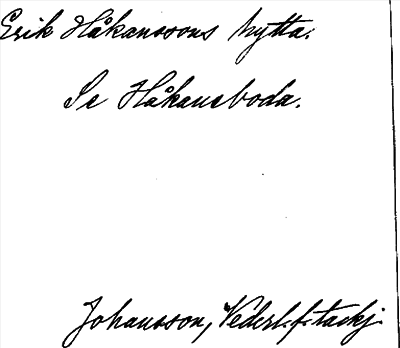 Erik Håkanssons hytta.
Se Håkansboda.
Johansson, Vederl. f. tackj.